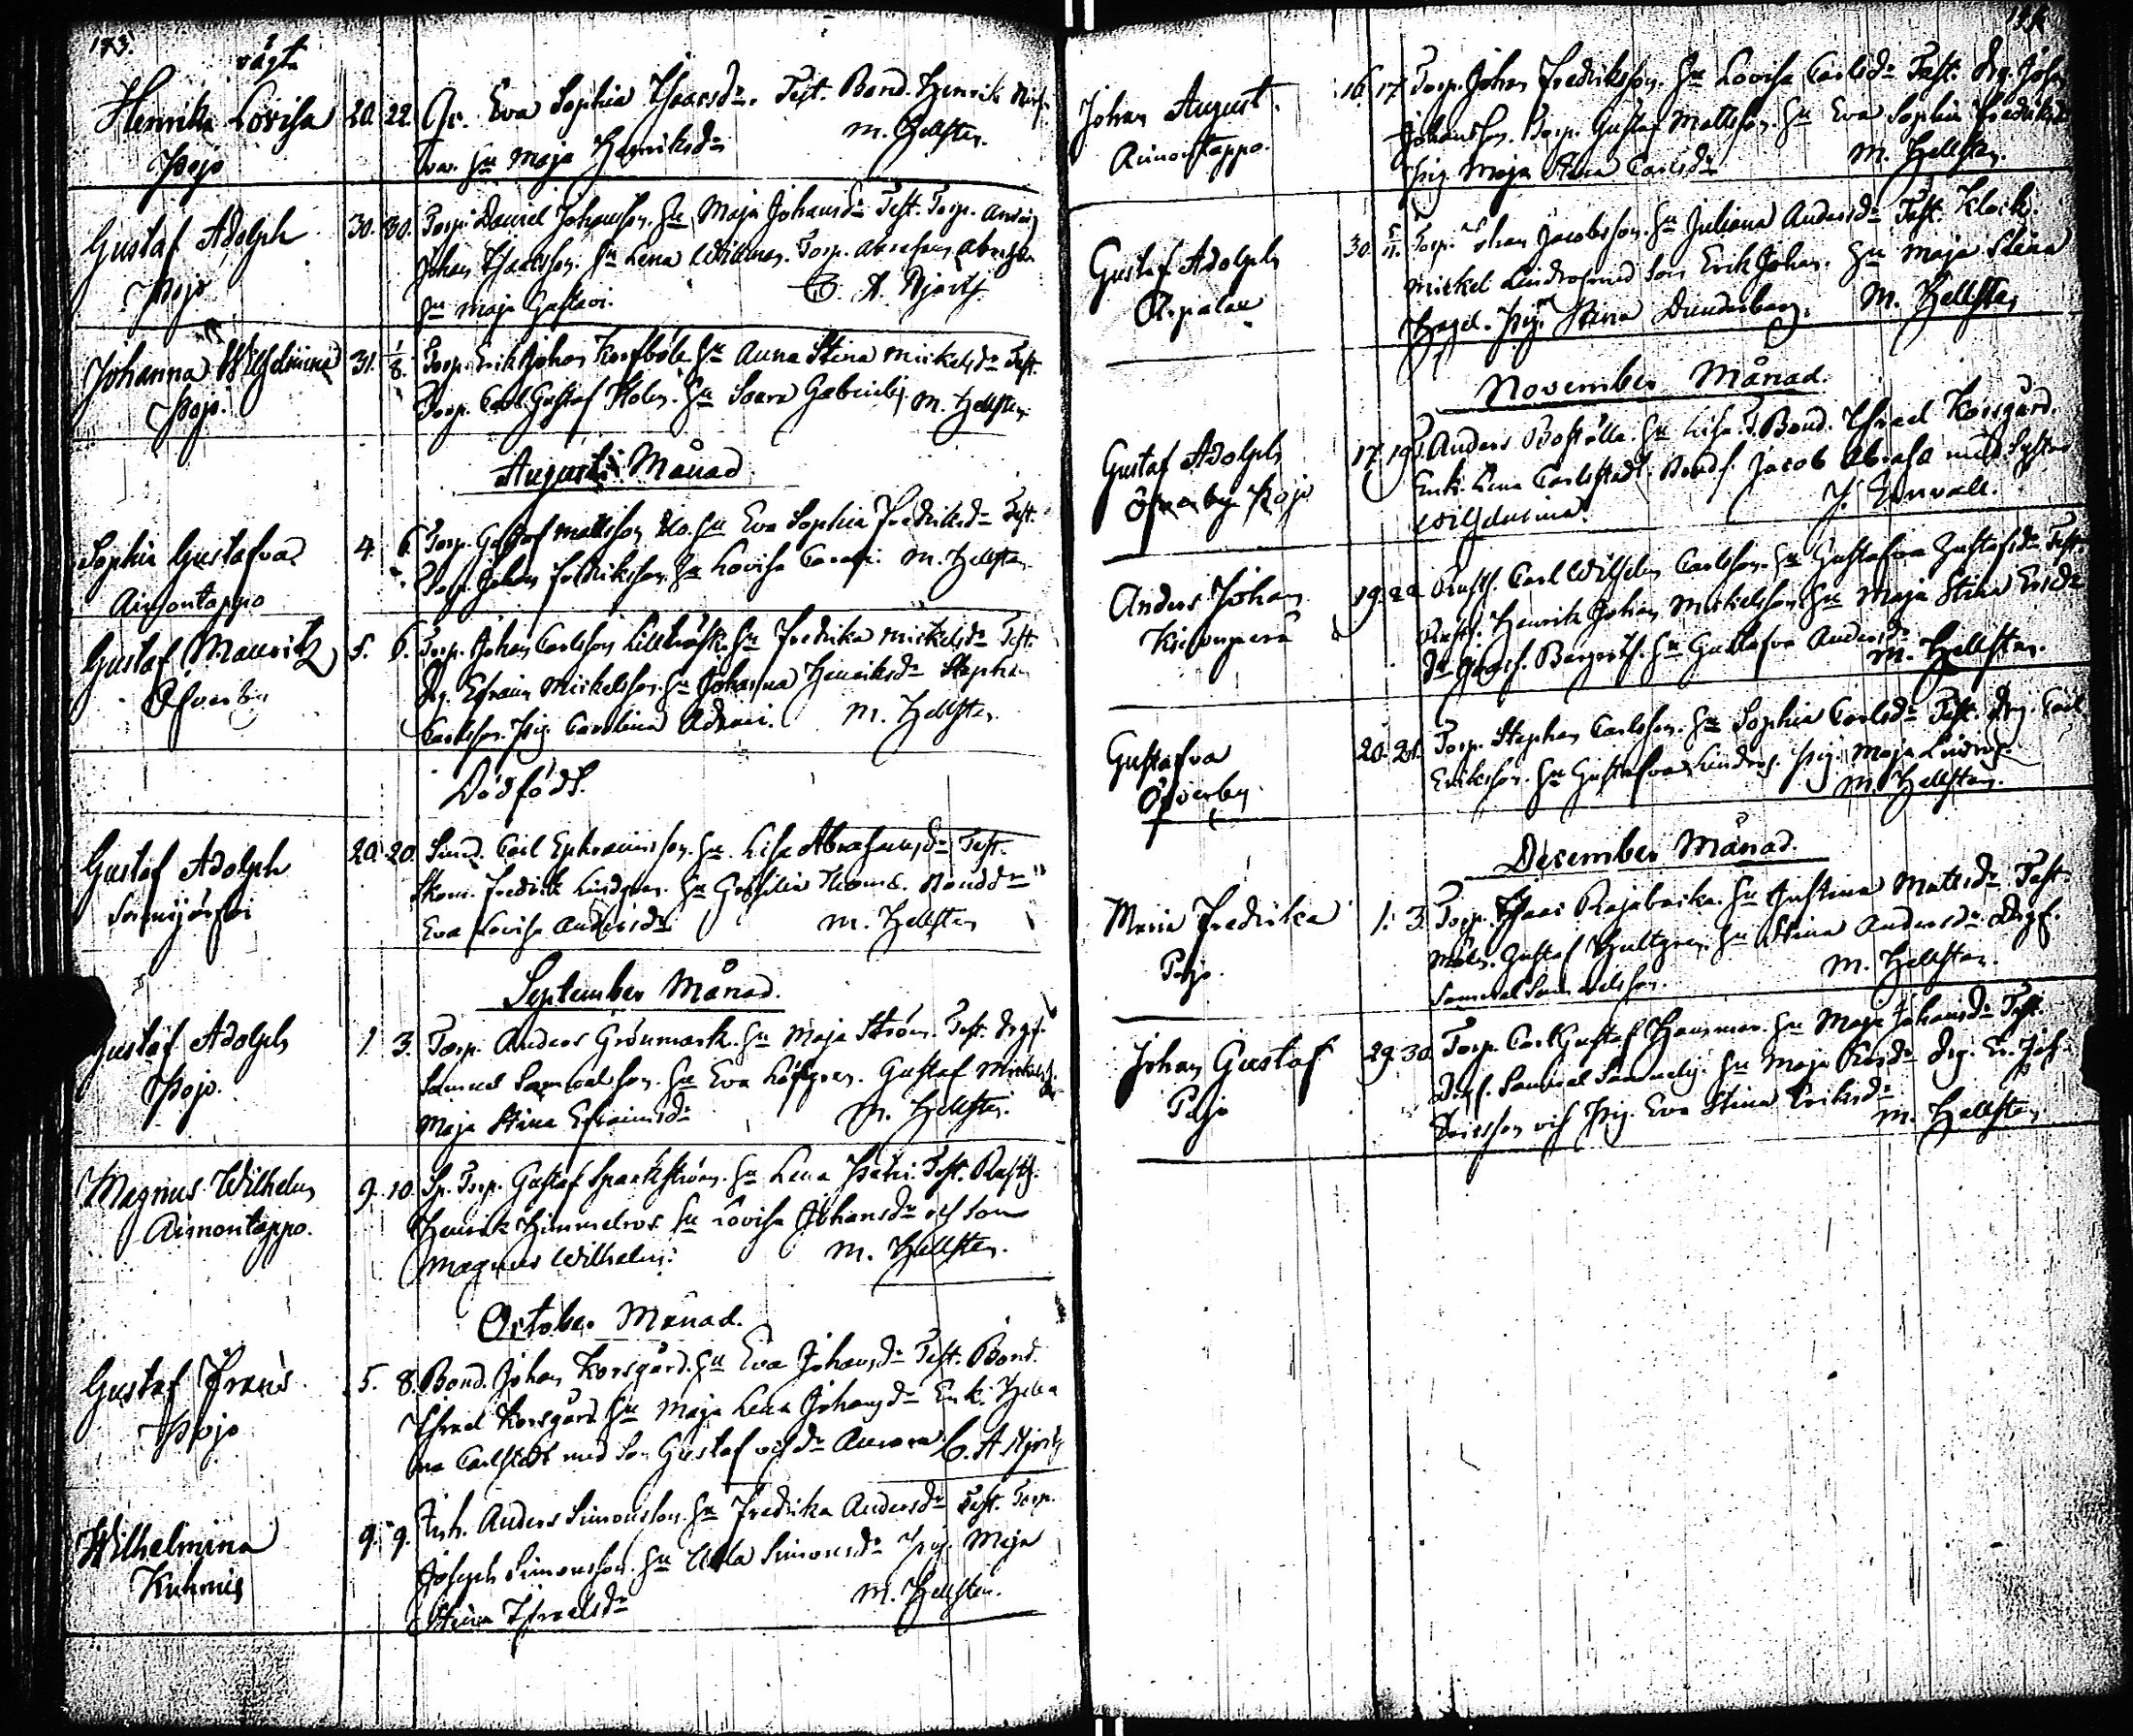 173.
oägt.
Henrika Lovisa 20. 22. Eva Sophia Isaacsdr. Test. Bond. Henrik
Pojo hu Maja Henriksdr M. Hellsten.
Gustaf Adolph 30. 30. Torp. Daniel Johansson. hu Maja Johansdr Test. Torp. Anders
Johan Isaacsson. hu Lena Willman. Torp. Abraham
Pojo hu Maja Gustavi. C. A. Njortz
Johanna Wilhelmina 31. 1/8. Torp. Erik Johan Korsböle hu Anna Stina Mickelsdr Test.
Pojo. Torp. Carl Gustaf Holm. hu Saara Gabrielsj. M. Hellsten
Augusti Månad.
Sophia Gustafva 4. 6. Torp. Gustaf Mattsson hu Eva Sophia Fredriksdr Test.
Torp. Johan Fredriksson. hu Lovisa M. Hellsten
Aimontappo
Gustaf Mauritz 5. 6. Torp. Johan Carlsson Lillträsk. hu Fredrika Mickelsdr Test.
Drg. Efraim Mickelsson. hu Johanna Henriksdr Stephan
Öfverby
Carlsson. Pig. Carolina M. Hellsten
Dödfödt.
Gustaf Adolph 20. 20. Carl Ephraimsson. hu Lisa Abrahamsdr Test.
Fredrik Lindgren. hu
Eva Lovisa Andersdr M. Hellsten
September Månad.
Gustaf Adolph 1. 3. Torp. Anders Grönmark. hu Maja Ström. Test. Drgf.
Samuel Samuelsson. hu Eva Löfgren. Gustaf Mickels.
Pojo.
Maja Stina Efraimsdr M. Hellsten.
Magnus Wilhelm 9. 10. Sp. Torp. Gustaf Sparkström. hu Lena Test. Rusth.
Henrik Himmelros hu Lovisa Johansdr och son
Aimontappo.
Magnus Wilhelm. M. Hellsten.
October Månad.
Gustaf Frans 5. 8. Bond. Johan Korsgård. hu Eva Johansdr Test. Bond.
Israel Korsgård hu Maja Lena Johansdr Enk. Hele
Pojo
na Carlstedt med Son Gustaf och dr Aurora C. A Njortz
Wilhelmina 9. 9. Inh. Anders Simonsson. hu Fredrika Andersdr Test. Torp.
Joseph Simonsson. hu Ulla Simonsdr Pig. Maja
Kuhmis
Stina Israelsdr M. Hellsten.
Johan August. 16. 17. Torp. Johan Fredriksson. hu Lovisa Carlsdr Test. Drg. Johan
Johansson. Torp. Gustaf Mattsson. hu Eva Sophia Fredriksdr
Aimontappo.
Pig. Maja Stina Carlsdr M. Hellsten.
Gustaf Adolph 30. Torp. Johan Jacobsson. hu Juliana Andersdr Test. Klock.
Mickel Lindros med son Erik Johan. hu Maja Stina
Pig. Stina Dunderberg. M. Hellsten
November Månad.
Gustaf Adolph 17. 19. Anders Boställe. hu Lisa. T. Bond. Israel Korsgård.
Enk. Lena Carlstedt. Bonds. Jacob Abrahs med Syster
Öfverby Pojo
Wilhelmina. J. Enwall.
Anders Johan 19. 22 Rusth. Carl Wilhelm Carlsson. hu Gustafva Gustafsdr Test.
Rusth. Henrik Johan Mickelsson. hu Maja Stina Ersdr
hu Gustafva Andersdr
M. Hellsten.
Gustafva 20. 21. Torp. Stephan Carlsson. hu Sophia Carlsdr Test. Drg. Carl
Eriksson. hu Gustafva Lindros. Pig. Maja Lindros
Öfverby
M. Hellsten.
December Månad.
Maria Fredrika 1. 3. Torp. Isaac Rajabacka. hu Justina Mattsdr Test.
Gustaf Hultgren. hu Stina Andersdr Drgf.
Pojo.
Samuel Samuelsson. M. Hellsten.
Johan Gustaf 29. 30. Torp. Carl Gustaf Hausman. hu Maja Johansdr Test.
Drgf. Samuel Samuelsj. hu Maja Drg. Er. Joh.
Pojo
Ericsson och Pig. Eva Stina Eriksdr
M. Hellsten